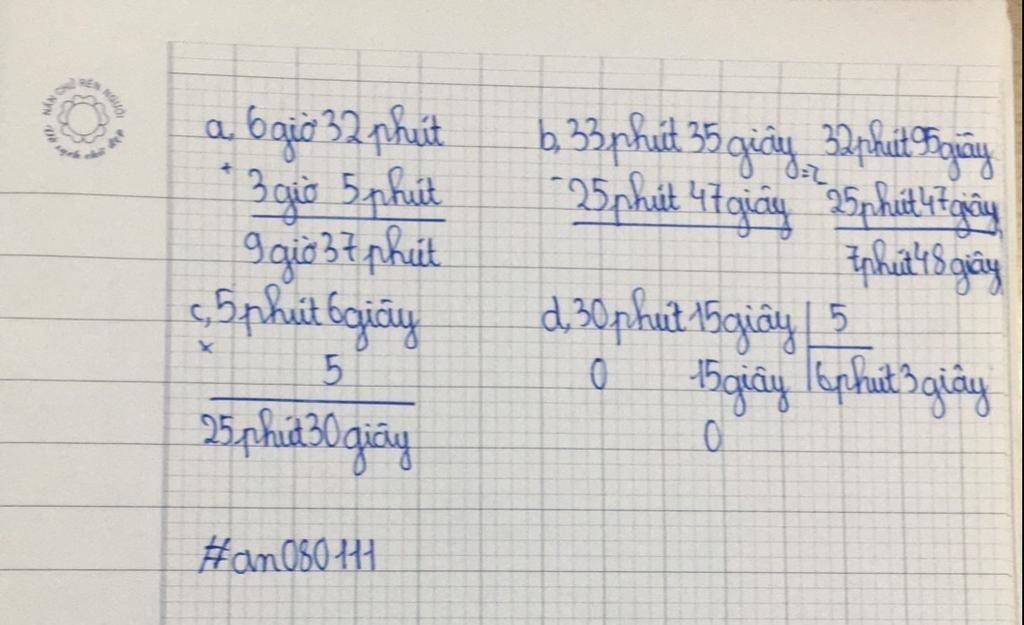 NẮN CHỮ RÈN NGƯỜI
a, 6 giờ 32 phút
+
3 giờ 5 phút
9 giờ 37 phút
b, 33 phút 35 giây => 32 phút 95 giây
- 25 phút 47 giây 25 phút 47 giây
7 phút 48 giây
c, 5 phút 6 giây
×
5
25 phút 30 giây
d, 30 phút 15 giây 5
0 15 giây 6 phút 3 giây
0
#an080111